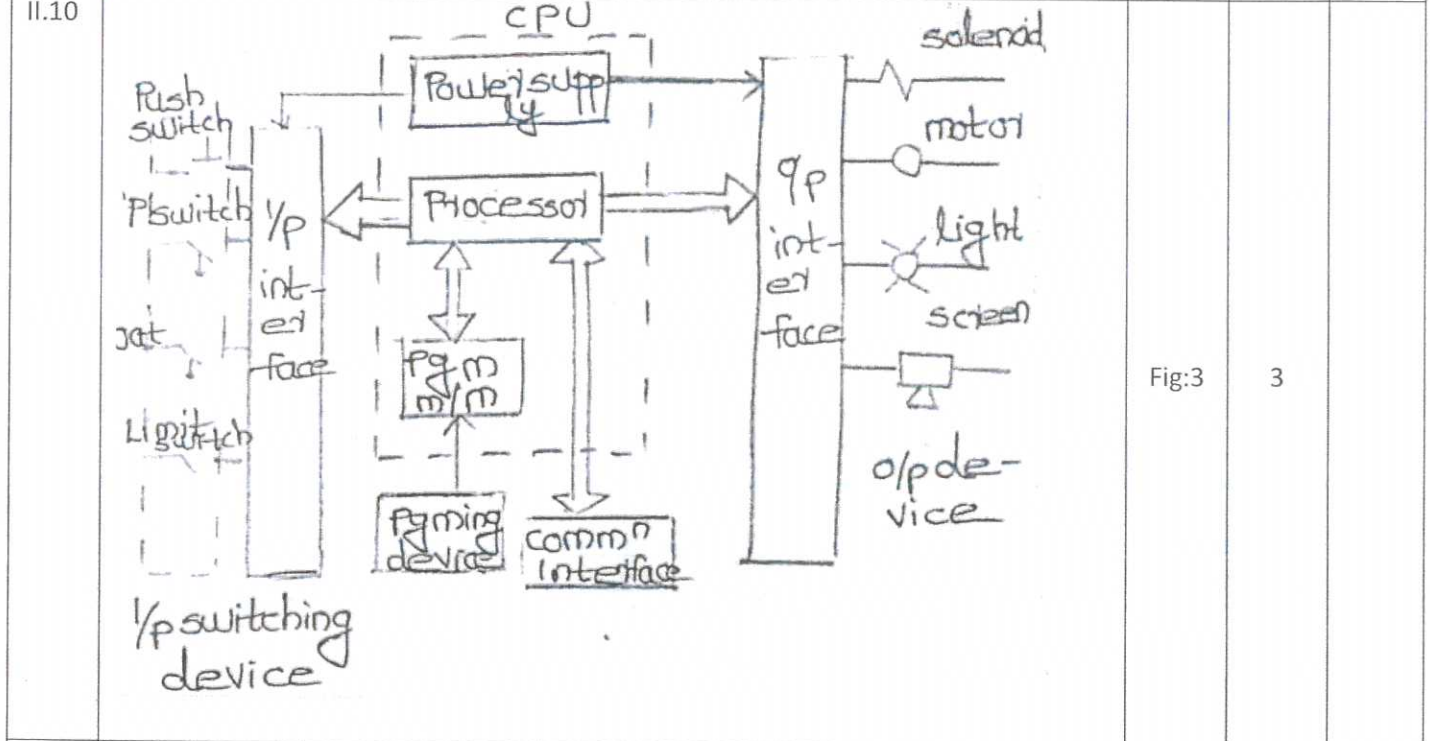 II.10
CPU
Power supp
ly
Processor
Pgm
m/m
Pgming
device
Commⁿ
Interface
Push
switch
I/p
int-
er
face
Limit
I/p switching
device
o/p
int-
er
face
solenoid
motor
light
screen
o/p de-
vice
Fig:3
3